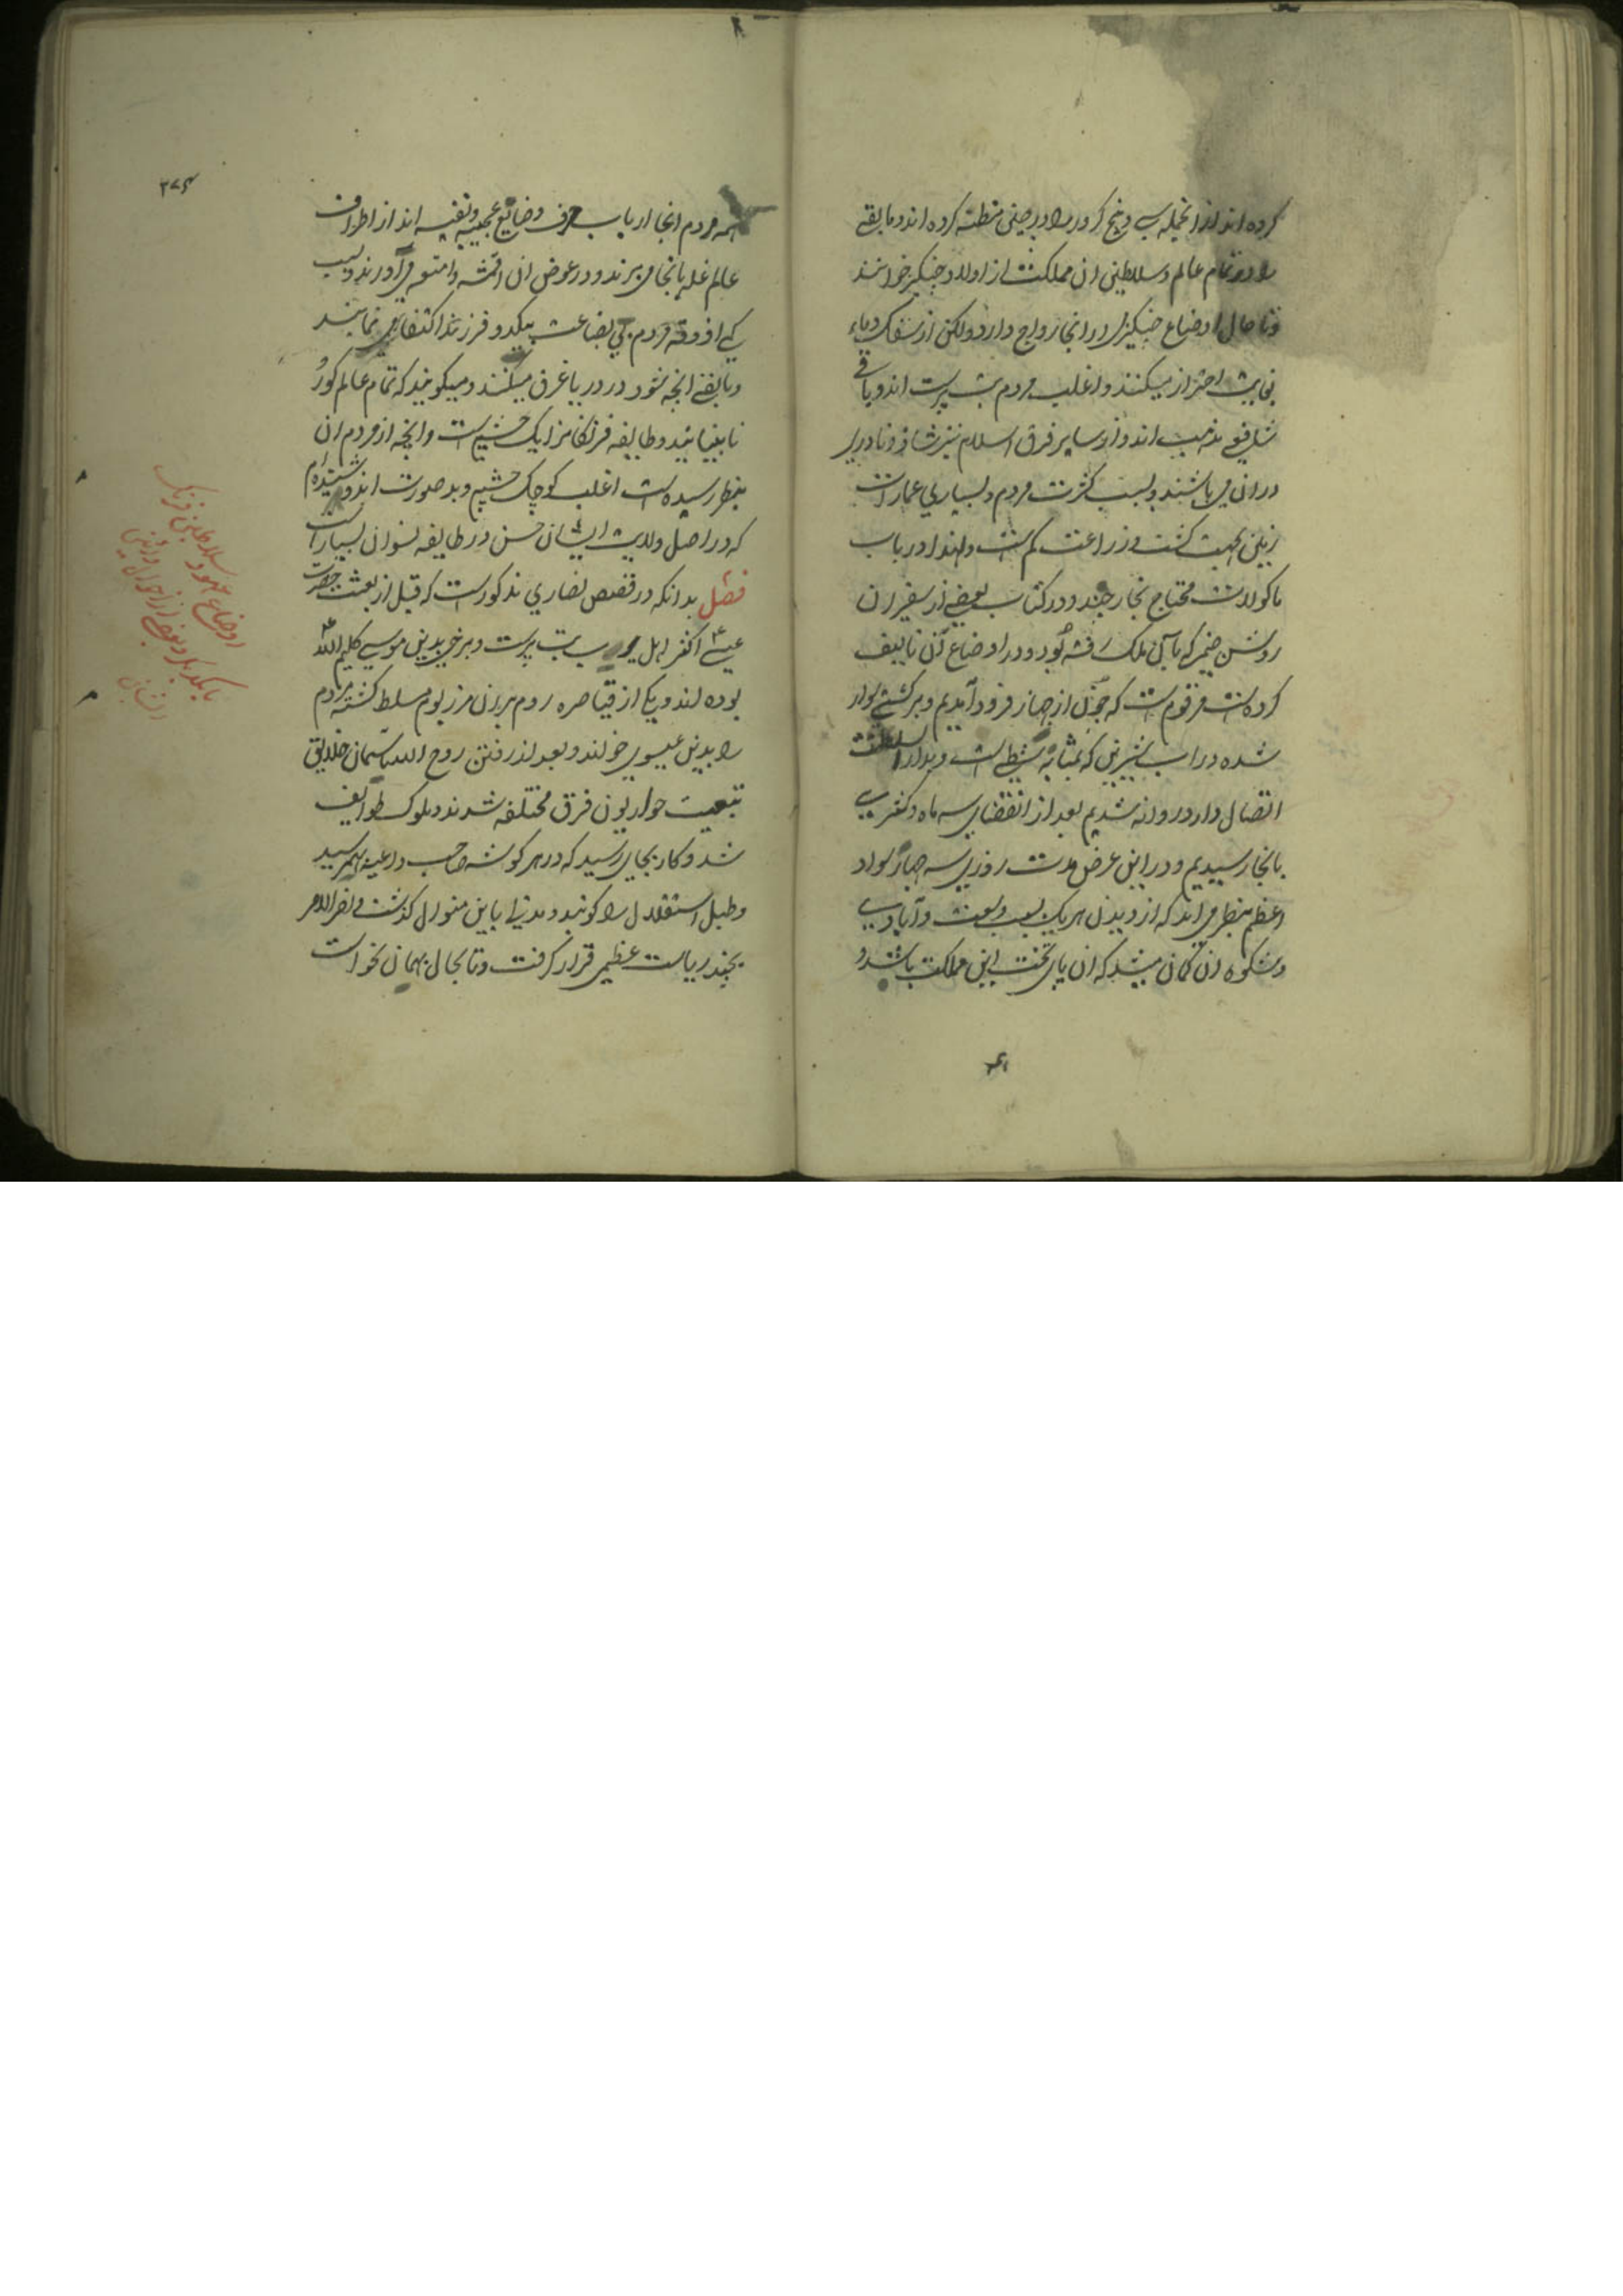 کرده اند از انجمله سی و پنج کرور را در چین مظنه کرده اند و مابقی
را در تمام عالم و سلاطین ان مملکت از اولاد چنگیزخوانند
و تا حال اوضاع چنگیزی در انجا رواج دارد ولکن از سفک دماء
بغایت احتراز میکنند و اغلب مردم بت پرست اند و باقی
شافعی مذهب اند و از سایر فرق اسلام نیز شاذ و نادری
در ان می باشند و بسبب کثرت مردم و بسیاری عمارات
زمین بجهت کشت و زراعت کم است و لهذا در باب
ماکولات محتاج بخارجند و در کتاب بعضی از سفیران
روشن ضمیر که بآن ملک رفته بود و در اوضاع آن تالیف
کرده است مرقوم است که چون از جهاز فرود آمدیم و بر کشتی سوار
شده در اب شیرین که بمثابه شطی است و بدار السلطنت
اتصال دارد روانه شدیم بعد از انقضای سه ماه و کسری
بانجا رسیدیم و در این عرض مدت روزی سه چهار سواد
اعظم بنظر می اند که از دیدن هر یک بسبب وسعت و آبادی
و شکوه ان گمان میشد که ان پای تخت این مملکت باشد و
۳۷۴
همه مردم انجا ارباب حرف و صنایع عجیبه و نفیسه اند از اطراف
عالم غله بانجا می برند و در عوض ان اقمشه و امتعه می آورند و بسبب
کمی اذوقه مردم بی بضاعت بیکدو فرزند اکتفا می نمایند
و مابقی انچه شود در دریا غرق میکنند و میگویند که تمام عالم کور
نابینایند و طایفه فرنگ را نیز یک چشم است و انچه از مردم ان
بنظر رسیده است اغلب کوچک چشم و بد صورت اند و شنیده ام
که در اصل ولایت ایشان حسن در طایفه نسوان بسیار است
فصل بدانکه در قصص نصاری مذکور است که قبل از بعثت حضرت
عیسی ع اکثر اهل یورپ بت پرست و برخی بدین موسی کلیم الله ع
بوده اند و یکی از قیاصره روم بران مرز بوم مسلط گشته مردم
را بدین عیسوی خواند و بعد از رفتن روح الله باسمان خلایق
تبعیت حواریون فرق مختلفه شدند و ملوک طوایف
شد و کار بجایی رسید که در هر گوشه صاحب داعیه بهمرسید
و طبل استقلال را کوبند و مدتی باین منوال گذشت و اخر الامر
بچند ریاست عظیمی قرار گرفت و تا بحال بهمان نحو است
اوضاع عهود سلاطین فرنگ
با یکدیگر و بعضی از احوال و آئین
ایشان